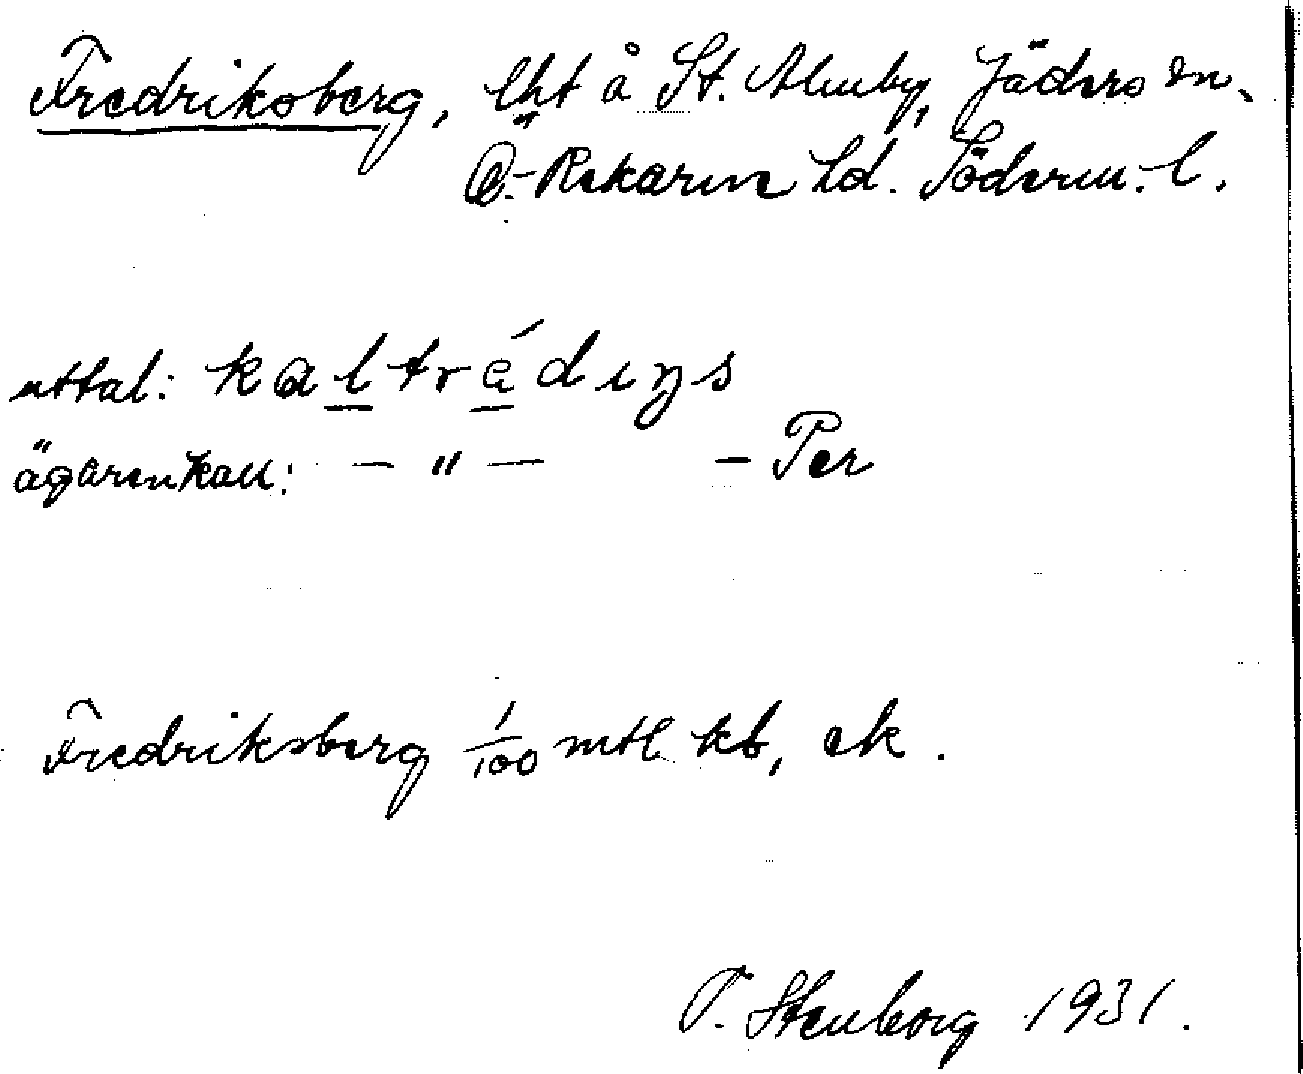 Fredriksberg, lht å St. Almby, Jäders sn.
Ö.-Rekarne hd. Söderm. l.
uttal: kaltrádıŋs
ägaren kall: – " – – Per
Fredriksberg 1/100 mtl kb, ek.
P. Stenborg 1931.